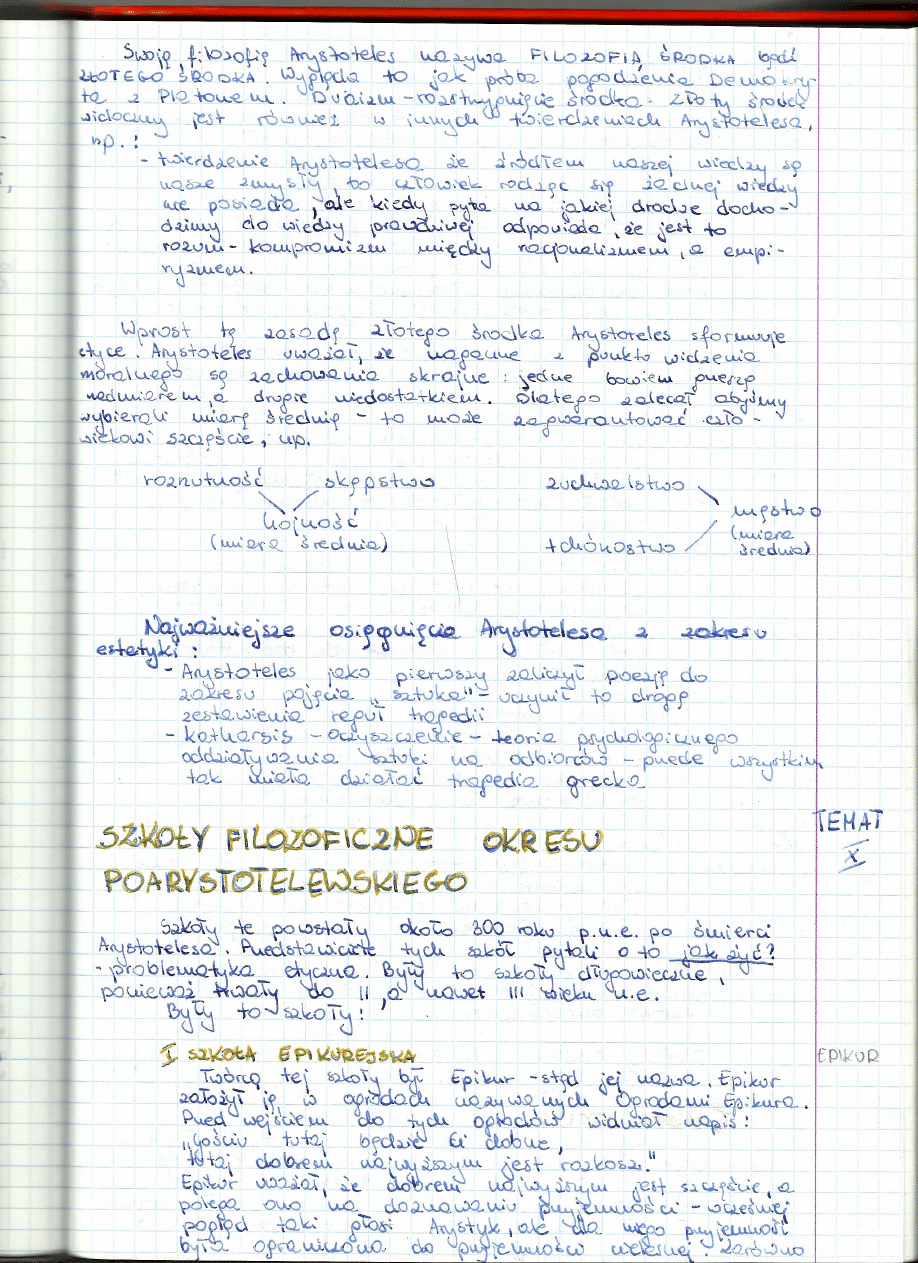 Swoją filozofię Arystoteles nazywa FILOZOFIĄ ŚRODKA bądź
ZŁOTEGO ŚRODKA. Wygląda to jak próba pogodzenia Demokry-
ta z Platonem. Dualizm - rozstrzygnięcie środka. Złoty środek
widoczny jest również w innych twierdzeniach Arystotelesa,
np.:
- twierdzenie Arystotelesa że źródłem naszej wiedzy są
nasze zmysły, to człowiek rodząc się żadnej wiedzy
nie posiada, ale kiedy pyta na jakiej drodze docho-
dzimy do wiedzy prawdziwej odpowiada, że jest to
rozum - kompromizm między racjonalizmem, a empi-
ryzmem.
Wprost tę zasadę złotego środka Arystoteles sformuje
etyce. Arystoteles uważał, że naganne z punktu widzenia
moralnego są zachowania skrajne: jedne bowiem grzeszą
nadmiarem, a drugie niedostatkiem. Dlatego zalecał abyśmy
wybierali miarę średnią - to może zagwarantować czło-
wiekowi szczęście, np.
rozrzutność skąpstwo zuchwalstwo
hojność męstwo
(miara średnia) (miara
tchórzostwo średnia)
Najważniejsze osiągnięcia Arystotelesa z zakresu
estetyki:
- Arystoteles jako pierwszy zaliczył poezję do
zakresu pojęcia „sztuka" - uczynił to drogą
zestawienia reguł tragedii
- katharsis - oczyszczenie - teoria psychologicznego
oddziaływania sztuki na odbiorców - przede wszystkim
tak miała działać tragedia grecka
SZKOŁY FILOZOFICZNE OKRESU
POARYSTOTELEWSKIEGO
TEMAT
X
Szkoły te powstały około 300 roku p.n.e. po śmierci
Arystotelesa. Przedstawiciele tych szkół pytali o to jak żyć?
- problematyka etyczna. Były to szkoły długowieczne,
ponieważ trwały do II, a nawet III wieku n.e.
Były to szkoły:
I SZKOŁA EPIKUREJSKA
EPIKUR
Twórcą tej szkoły był Epikur - stąd jej nazwa. Epikur
założył ją w ogrodach nazywanych Ogrodami Epikura.
Przed wejściem do tych ogrodów widniał napis:
„Gościu tutaj będzie Ci dobrze,
tutaj dobrem najwyższym jest rozkosz."
Epikur uważał, że dobrem najwyższym jest szczęście, a
polega ono na doznawaniu przyjemności - wcześniej
pogląd taki głosi Arystyk, ale dla niego przyjemność
była ograniczona do przyjemności cielesnej. Zarówno